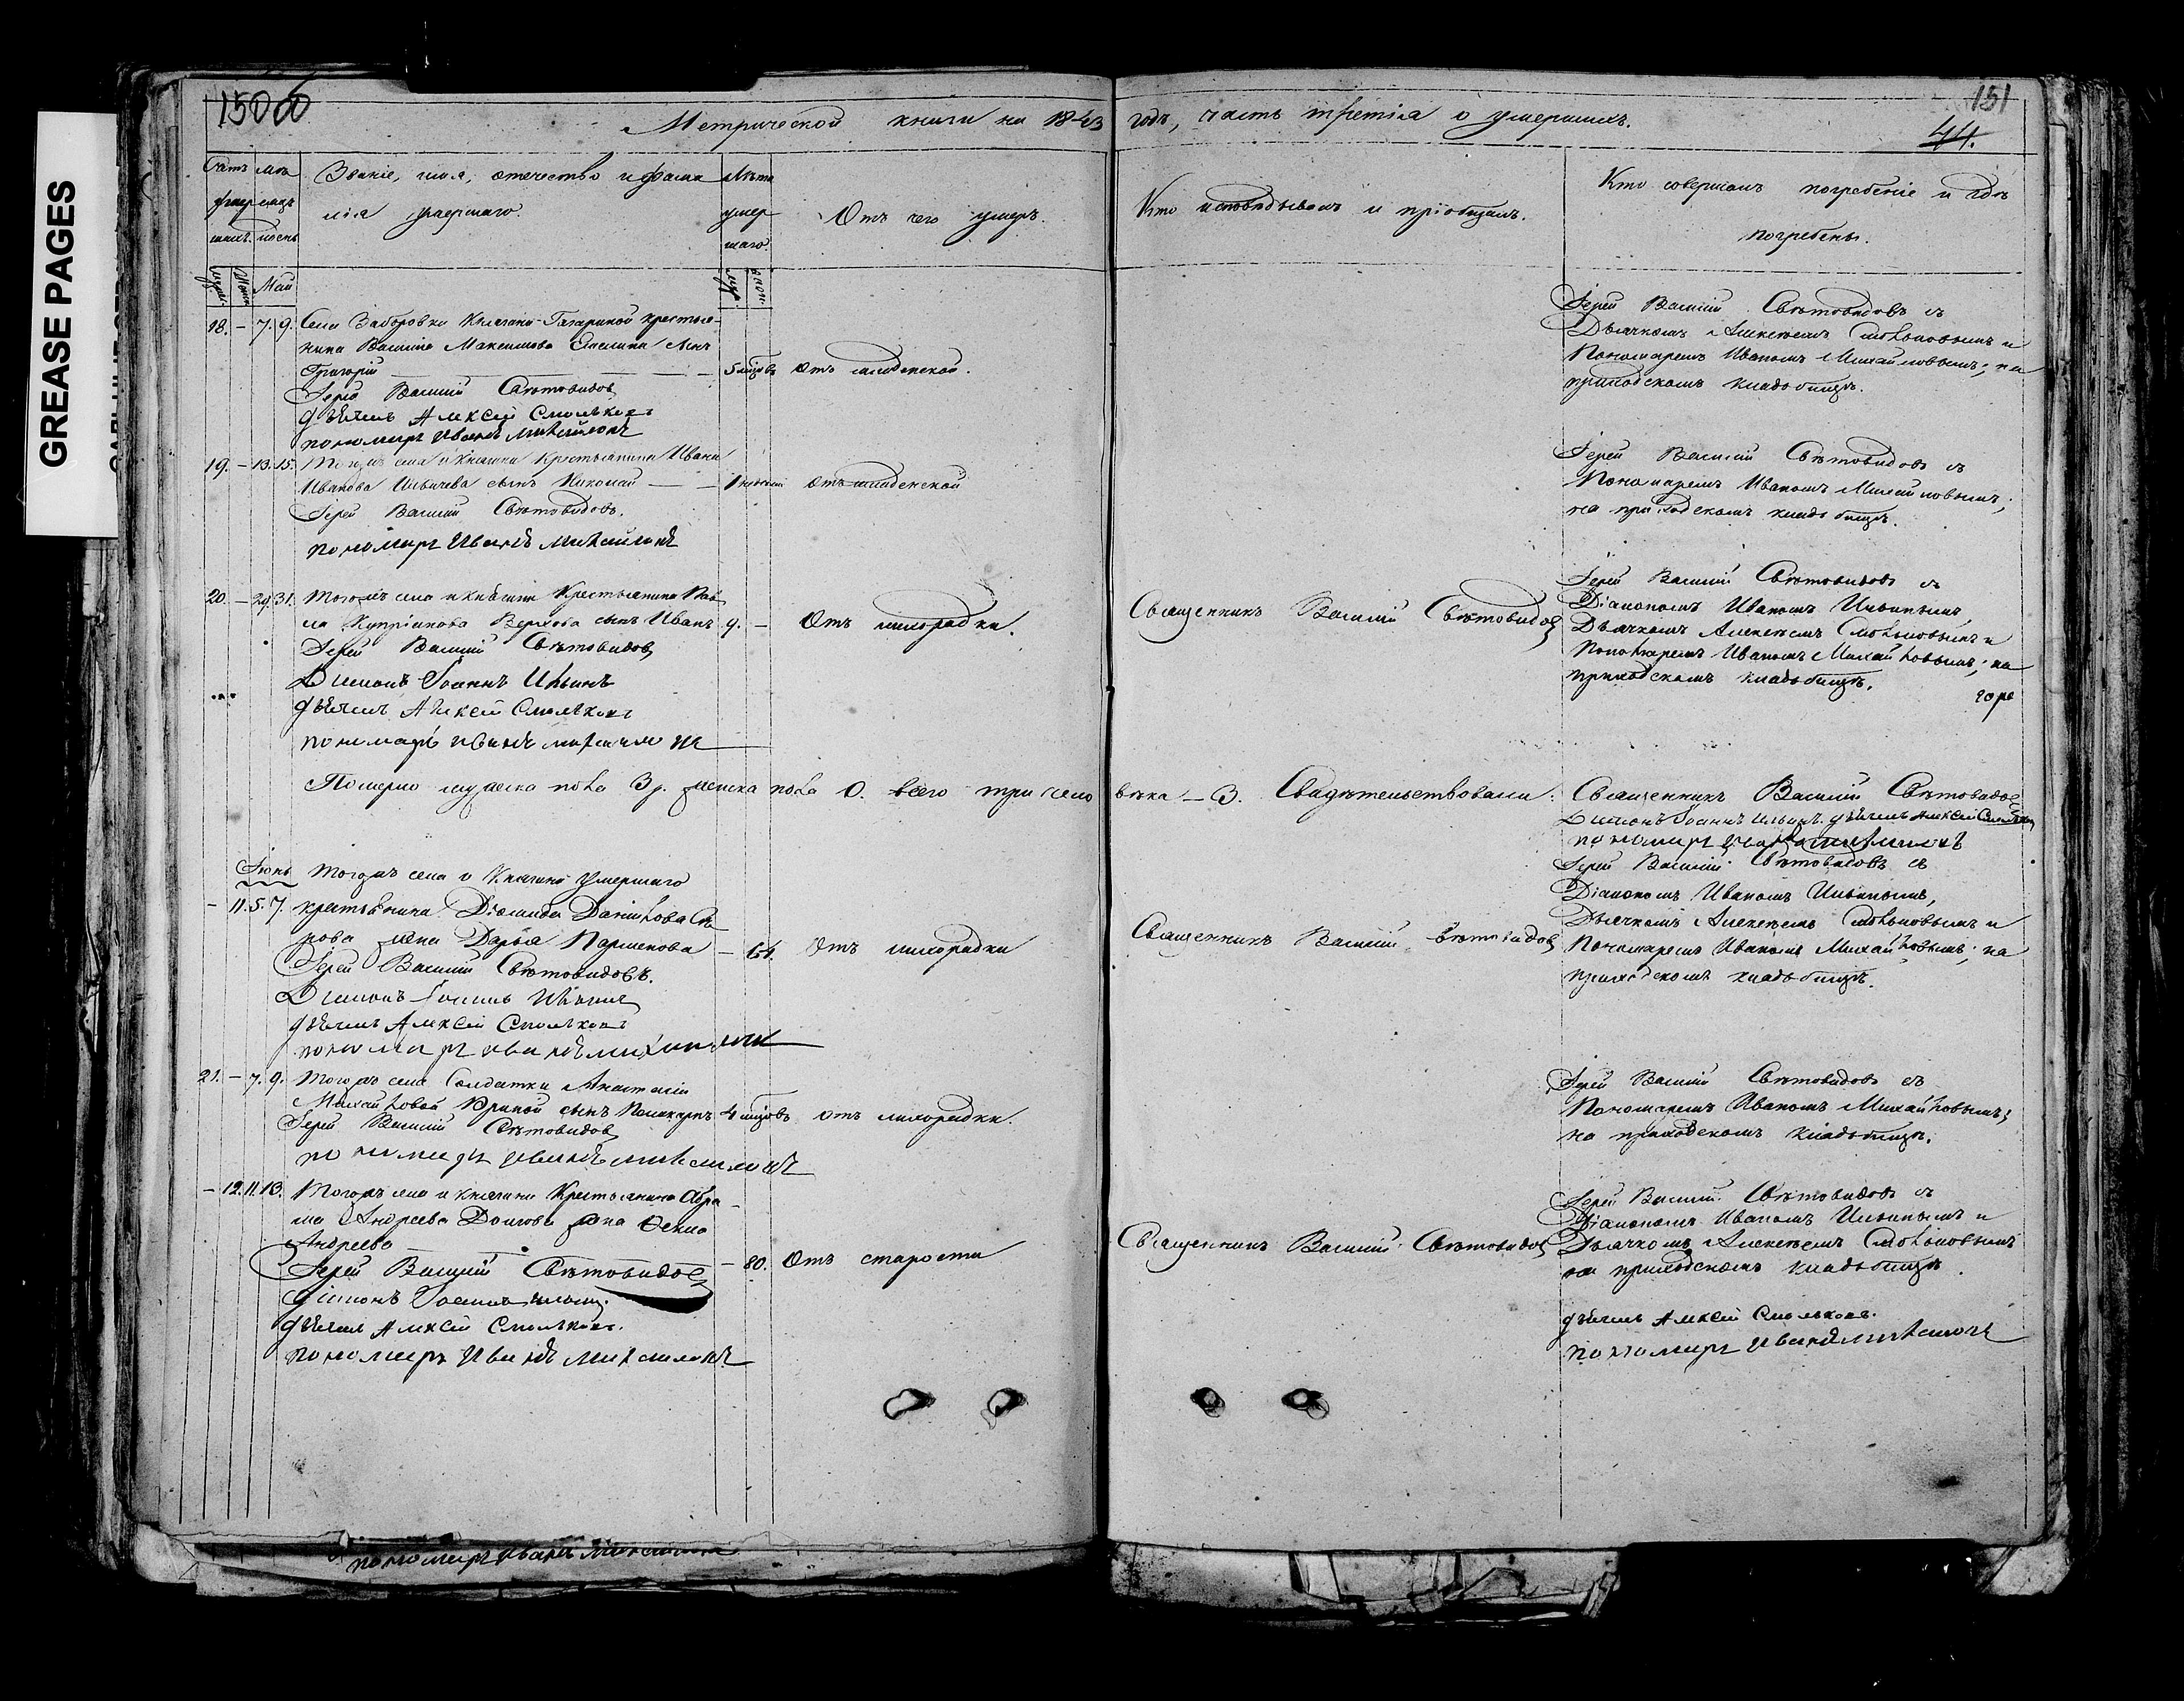 GREASE PAGES
150об
151
44.
Метрической книги на 1843 годъ, часть третія о умершихъ.
Званіе, имя, отечество и фами
лія умершаго.
Лѣта
умер
шаго
Отъ чего умеръ.
Кто исповѣдывалъ и пріобщалъ.
Кто совершалъ погребеніе и гдѣ
погребены.
Май
18. – 7. 9. Села Заборовки Княгини Гагариной крестья-
нина Василія Максимова сынъ
Григорій — 5 мѣцовъ Отъ младенской.
Іерей Василій Свѣтовидовъ
дьячекъ Алексѣй Смольковъ
пономарь Иванъ Михайловъ
Іерей Василій Свѣтовидовъ съ
Дьячкомъ Алексѣемъ Смольковымъ и
Пономаремъ Иваномъ Михайловымъ; на
приходскомъ кладбищѣ.
19. – 13. 15. Тогожъ села и княгини Крестьянина Ивана
Иванова сынъ Николай — отъ младенской
Іерей Василій Свѣтовидовъ.
пономарь Иванъ Михайловъ
Іерей Василій Свѣтовидовъ съ
Пономаремъ Иваномъ Михайловымъ;
на приходскомъ кладбищѣ.
20. – 29. 31. Тогожъ села и княгини Крестьянина Пав
ла Купріянова сынъ Иванъ 9. – Отъ лихорадки.
Іерей Василій Свѣтовидовъ
Діаконъ Іоаннъ Ильинъ
дьячекъ Алексѣй Смольковъ
пономарь Иванъ Михайловъ
Священникъ Василій Свѣтовидовъ
Іерей Василій Свѣтовидовъ съ
Діакономъ Иваномъ Ильинымъ
Дьячкомъ Алексѣемъ Смольковымъ и
Пономаремъ Иваномъ Михайловымъ; на
приходскомъ кладбищѣ.
Померло мужеска пола 3, женска пола 0. всего три чело вѣка – 3. Свидѣтельствовали: Священникъ Василій Свѣтовидовъ
Діаконъ Іоаннъ Ильинъ. дьячекъ Алексѣй Смольковъ
пономарь Иванъ Михайловъ
Іюнь
– 11. 5. 7. Тогожъ села и Княгини умершаго
крестьянина Даниловa
жена Дарья Парменова – Отъ лихорадки
Іерей Василій Свѣтовидовъ.
Діаконъ Іоаннъ Ильинъ
дьячекъ Алексѣй Смольковъ
пономарь Иванъ Михайловъ
Священникъ Василій Свѣтовидовъ
Іерей Василій Свѣтовидовъ съ
Діакономъ Иваномъ Ильинымъ,
Дьячкомъ Алексѣемъ Смольковымъ и
Пономаремъ Иваномъ Михайловымъ; на
приходскомъ кладбищѣ.
21. – 7. 9. Тогожъ села Солдатки Анастасіи
Михайловой сынъ Поликарпъ 4 мѣцовъ отъ лихорадки.
Іерей Василій Свѣтовидовъ
пономарь Иванъ Михайловъ
Іерей Василій Свѣтовидовъ съ
Пономаремъ Иваномъ Михайловымъ;
на приходскомъ кладбищѣ.
– 12. 11. 13. Тогожъ села и княгини Крестьянина Абра-
ма Андреева Долгова жена Ѳекла
Андреева – 80. Отъ старости
Іерей Василій Свѣтовидовъ
діаконъ Іоаннъ Ильинъ.
дьячекъ Алексѣй Смольковъ.
пономарь Иванъ Михайловъ
Священникъ Василій Свѣтовидовъ
Іерей Василій Свѣтовидовъ съ
Діакономъ Иваномъ Ильинымъ и
Дьячкомъ Алексѣемъ Смольковымъ
на приходскомъ кладбищѣ.
дьячекъ Алексѣй Смольковъ.
пономарь Иванъ Михайловъ
пономарь Иванъ Михайловъ